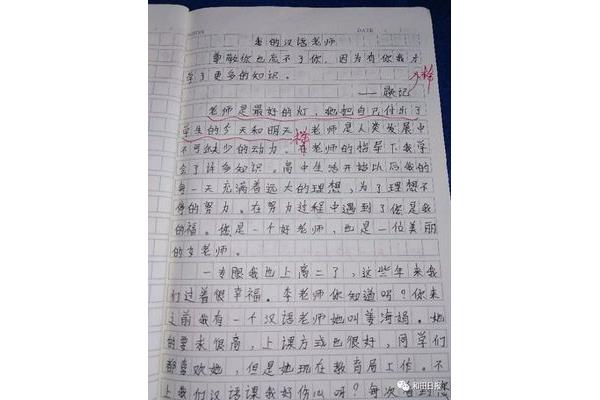 DATE
我的汉语老师
尊敬你也忘不了你，因为有你我才
学了更多的知识。
——题记
老师是最好的灯，她把自己付出了
学生的今天和明天，老师是人类发展中
不可缺少的动力。在老师的指导下我学
会了许多知识。高中生活开始以后我的
每一天充满着远大的理想，为了理想不
停的努力。在努力过程中遇到了你是我
的福。你是一个好老师，也是一位美丽
的女老师。
一专眼我也上高二了，这些年来我
们过着很幸福。李老师你知道吗？你来
之前我有一个汉语老师她叫姜海娟。她
的要求很高，上课方式也很好，同学们
都喜欢她，但是她现在教育局上作。不
上我们汉语课我好伤心吗？每次看到您
和田日报